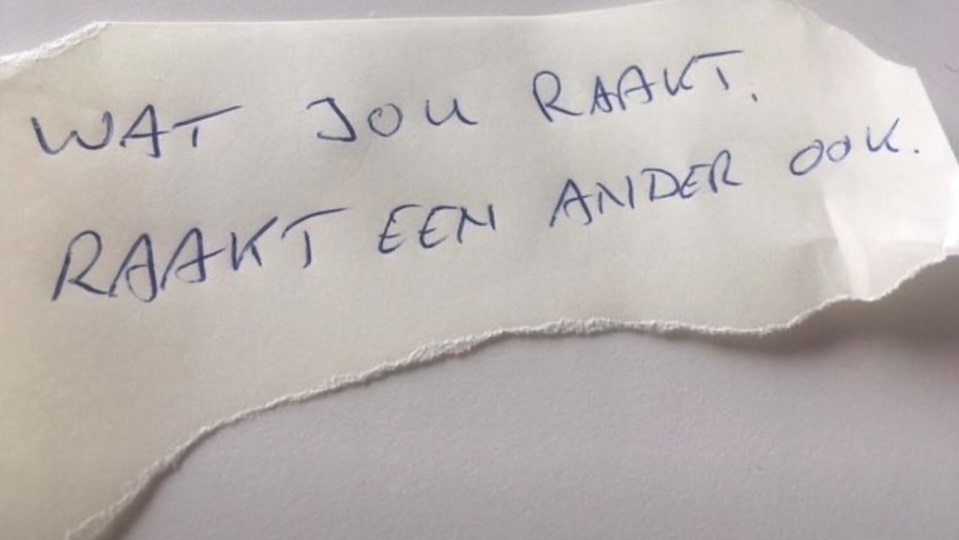 WAT JOU RAAKT,
RAAKT EEN ANDER OOK.